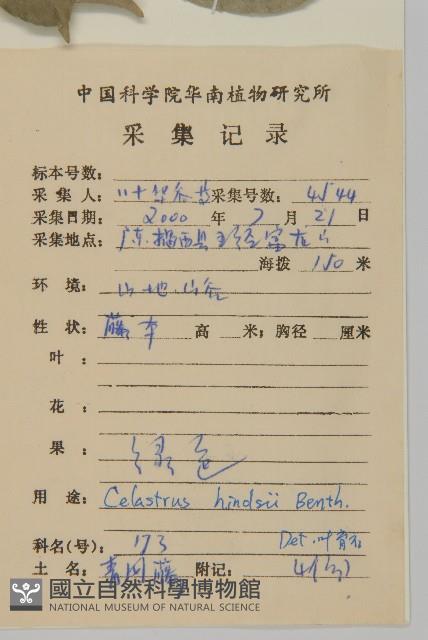 中国科学院华南植物研究所
采集记录
标本号数:
采集人: 采集号数: 4544
采集日期: 2000 年 7 月 21 日
采集地点: 广东揭西县
海拨 150 米
环境: 山地山谷
性状: 藤本 高 米; 胸径 厘米
叶:
花:
果: 绿色
用途: Celastrus hindsii Benth.
科名(号): 173 Det.
土名: 青冈藤 附记: 4
國立自然科學博物館
NATIONAL MUSEUM OF NATURAL SCIENCE